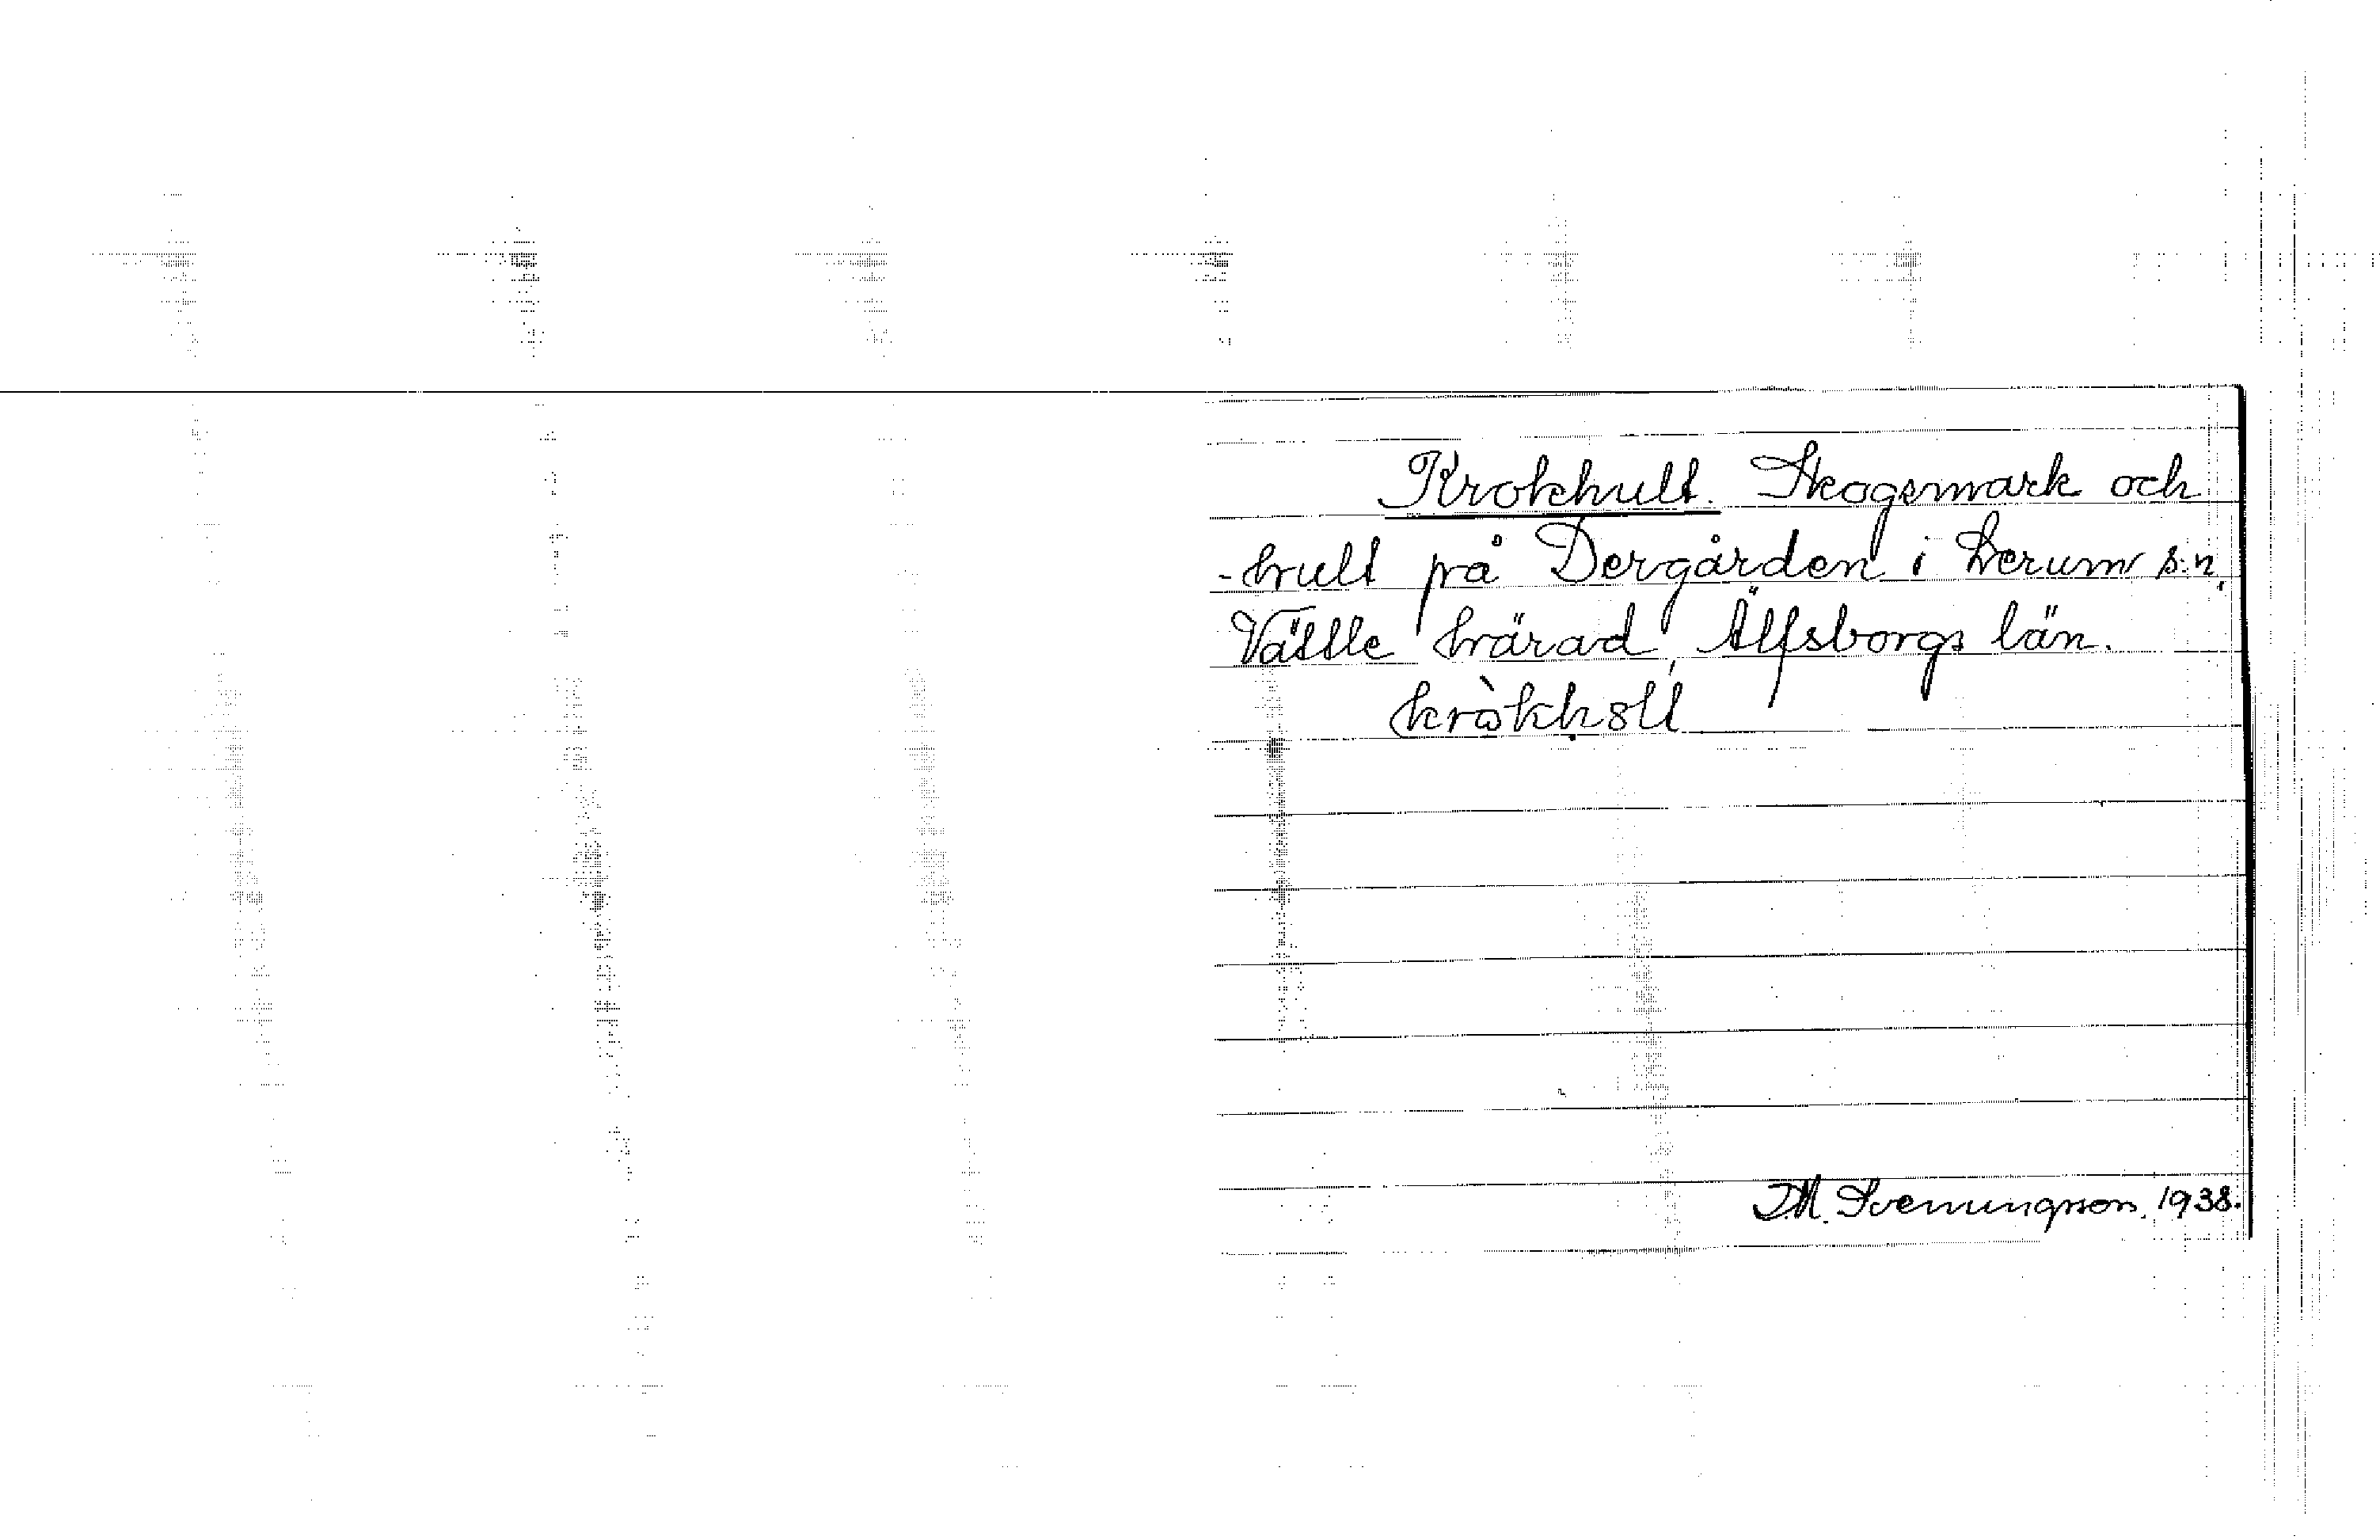 Krokhult. Skogsmark och
-hult på Dergården i Lerum s:n,
Vättle härad, Älfsborgs län.
kròkhol̄l
D.M. Svenungsson, 1938.